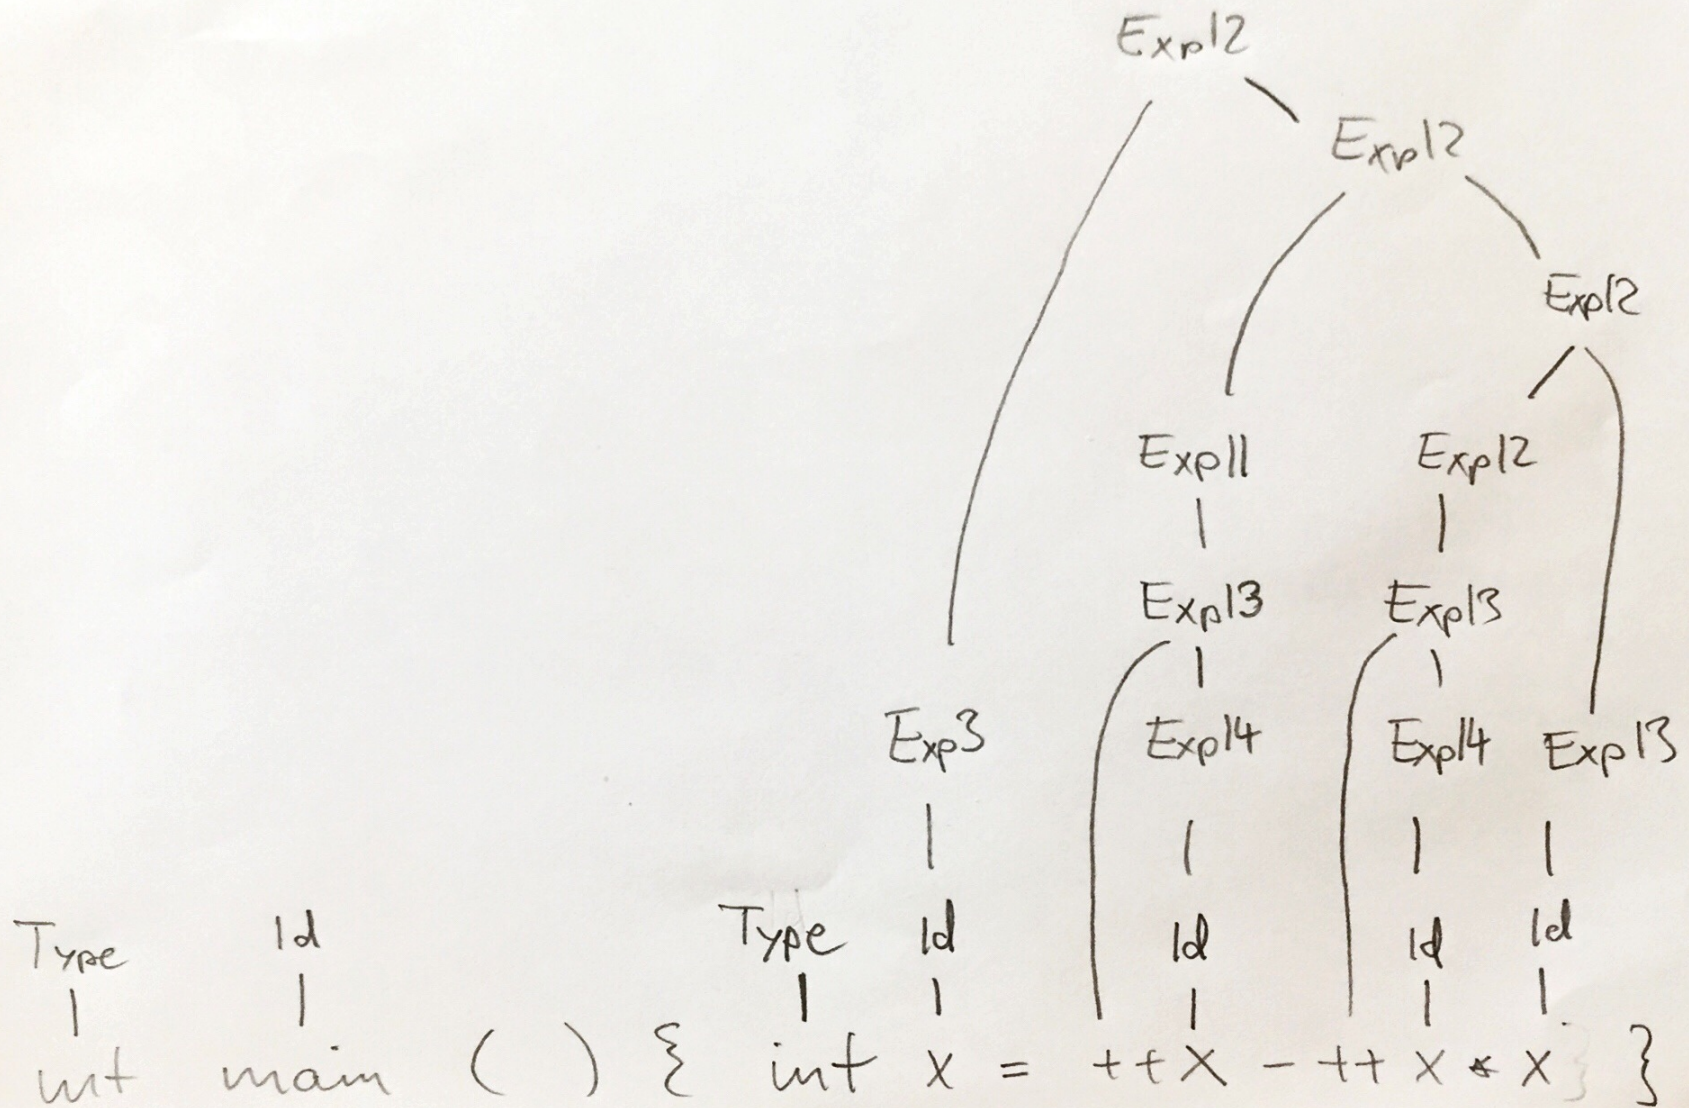 Exp12
Exp12
Exp12
Exp11 Exp12
Exp13 Exp13
Exp3 Exp14 Exp14 Exp13
Type Id Type Id Id Id Id
int main ( ) { int x = ++ x - ++ x * x }